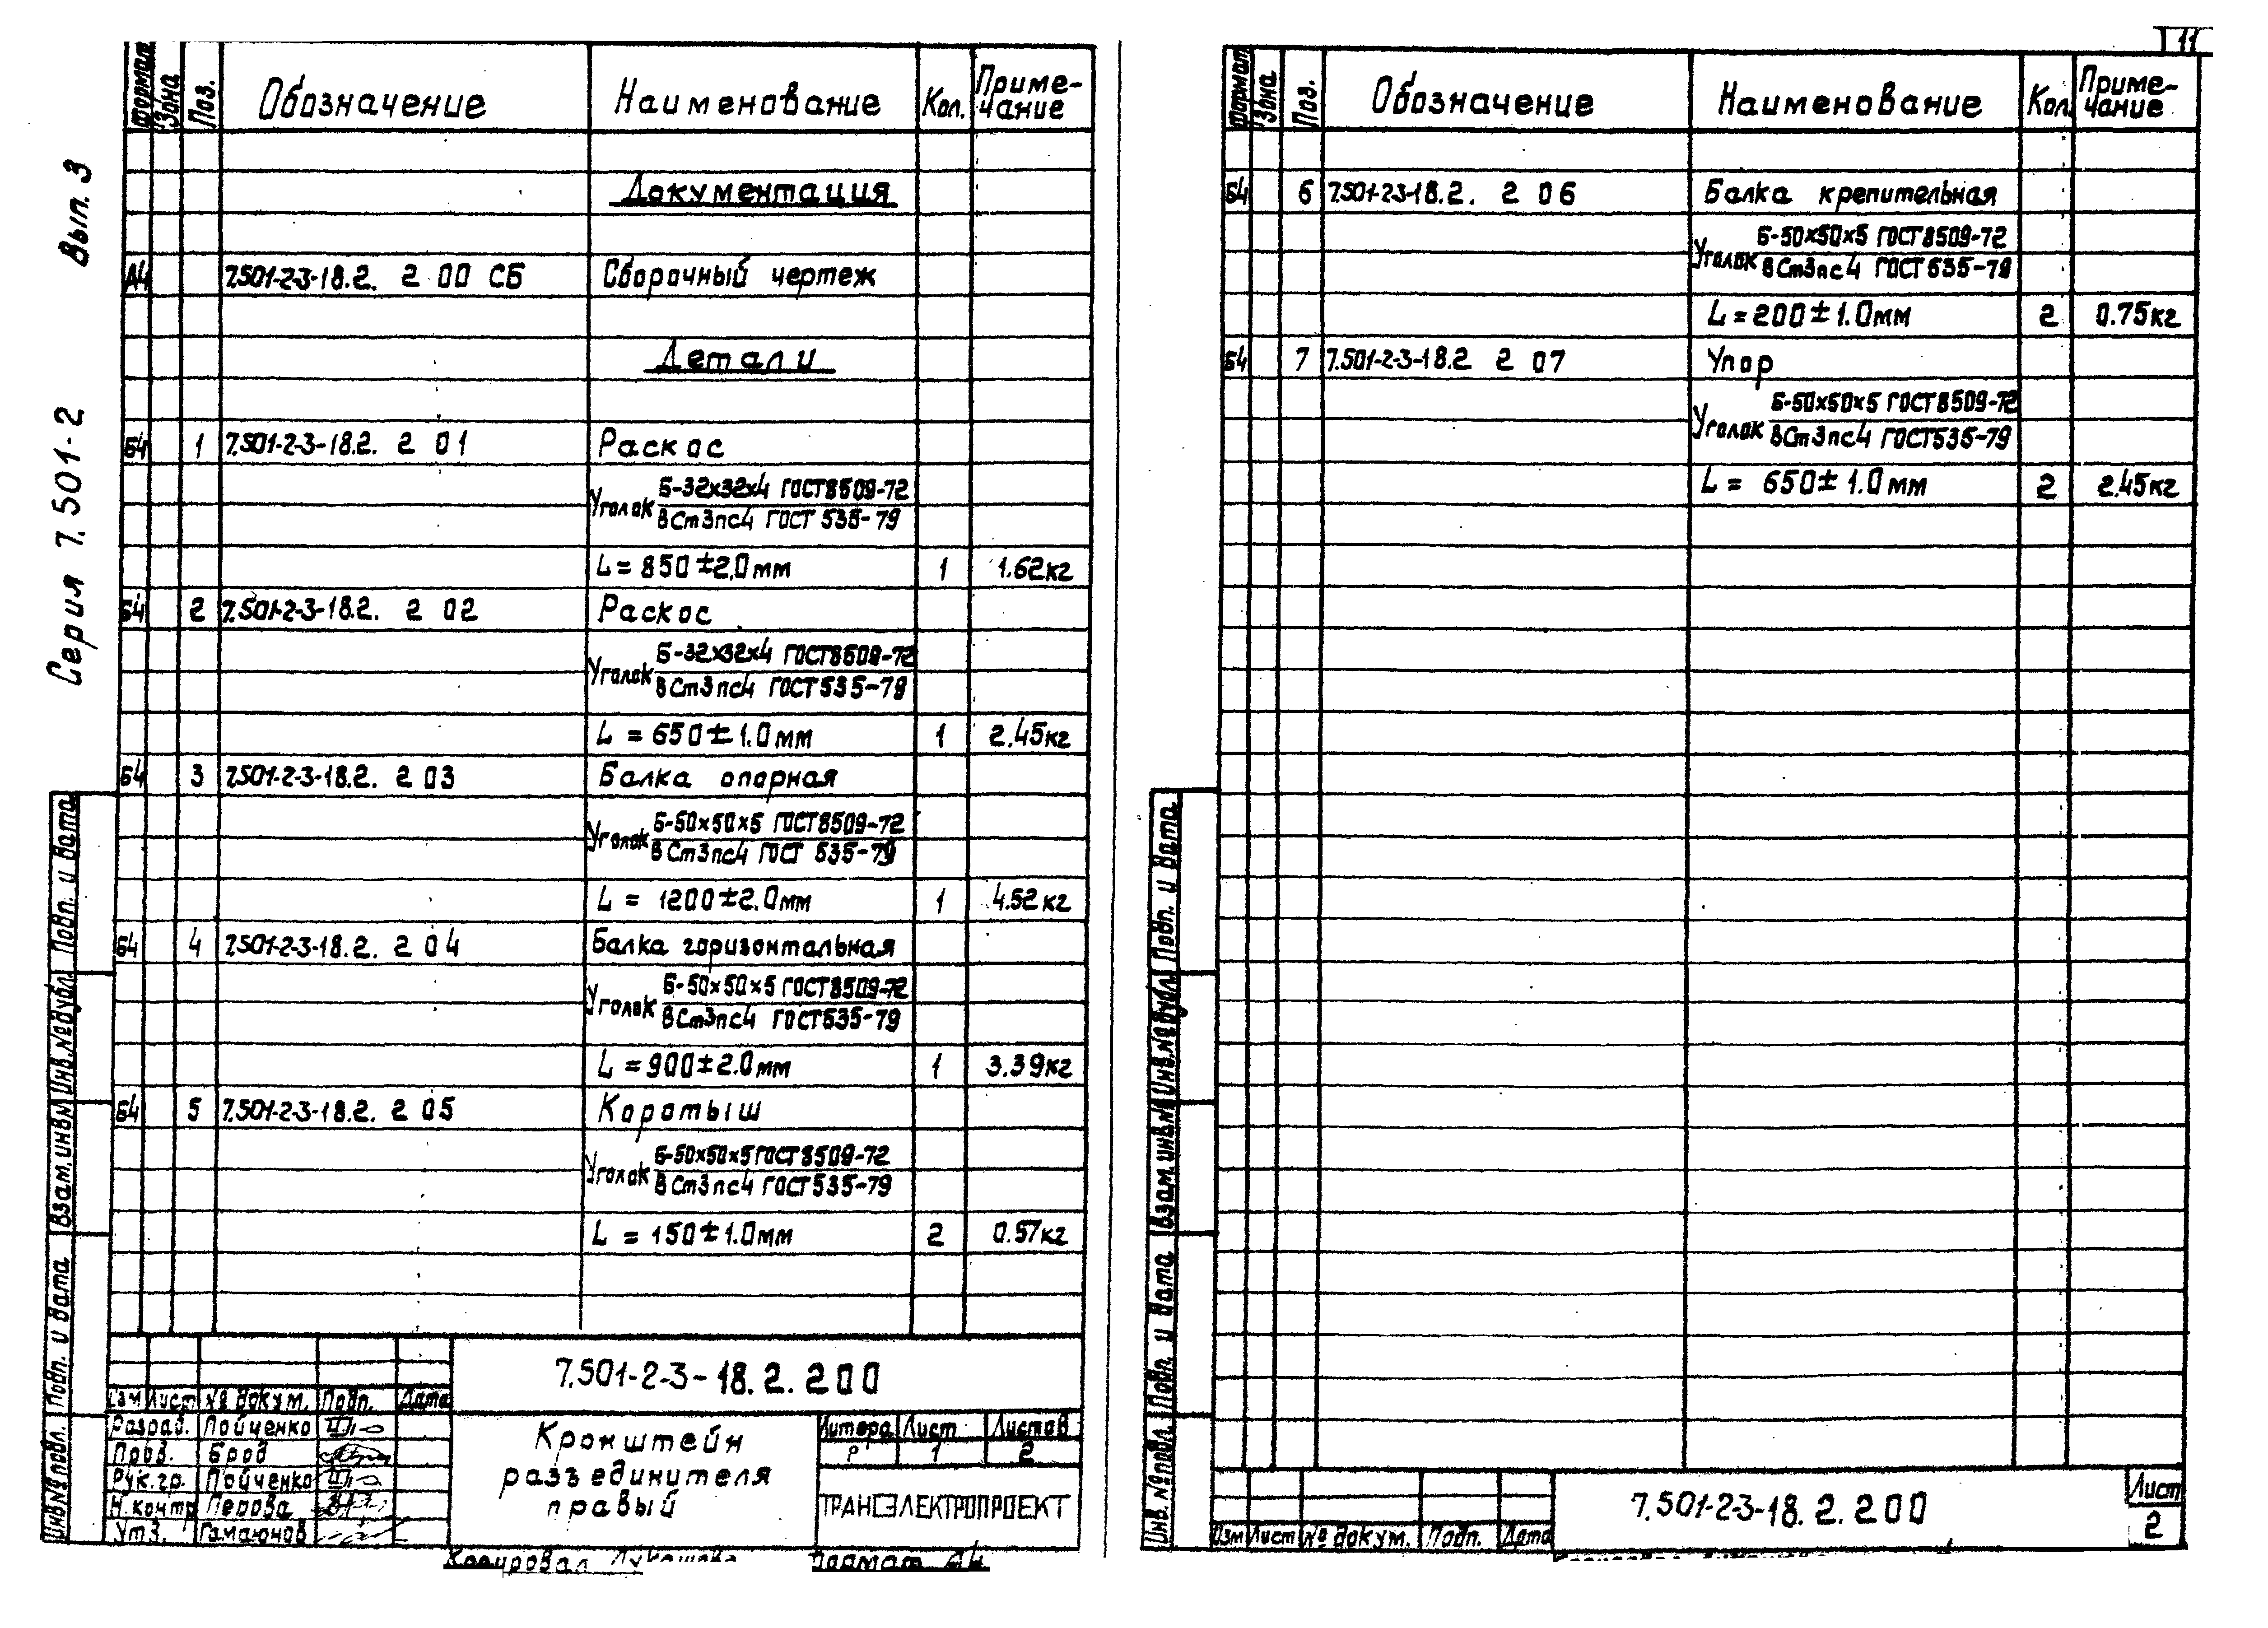 Серия 7.501-2 Вып. 3
Формат Зона Поз. Обозначение Наименование Кол. Приме-
чание
Документация
А4 7.501-2-3-18.2. 2 00 СБ Сборочный чертеж
Детали
Б4 1 7.501-2-3-18.2. 2 01 Раскос
Б-32х32х4 ГОСТ8509-72
Уголок
ВСт3пс4 ГОСТ 535-79
L = 850 ±2.0мм 1 1.62кг
Б4 2 7.501-2-3-18.2. 2 02 Раскос
Б-32х32х4 ГОСТ8509-72
Уголок
ВСт3пс4 ГОСТ535-79
L = 650 ± 1.0мм 1 2.45кг
Б4 3 7.501-2-3-18.2. 2 03 Балка опорная
Б-50х50х5 ГОСТ8509-72
Уголок
ВСт3пс4 ГОСТ 535-79
L = 1200 ±2.0мм 1 4.52кг
Б4 4 7.501-2-3-18.2. 2 04 Балка горизонтальная
Б-50х50х5 ГОСТ8509-72
Уголок
ВСт3пс4 ГОСТ535-79
L = 900±2.0мм 1 3.39кг
Б4 5 7.501-2-3-18.2. 2 05 Коротыш
Б-50х50х5 ГОСТ8509-72
Уголок
ВСт3пс4 ГОСТ535-79
L = 150±1.0мм 2 0.57кг
Инв.№ подл. Подп. и дата Взам.инв.№ Инв.№ дубл. Подп. и дата
7.501-2-3-18.2.200
Изм Лист № докум. Подп. Дата
Разраб. Пойченко
Пров. Брод
Рук.гр. Пойченко
Н.контр Перова
Утв. Гамаюнов
Кронштейн
разъединителя
правый
Литера Лист Листов
Р 1 2
ТРАНСЭЛЕКТРОПРОЕКТ
Копировал Формат А4
11
Формат Зона Поз. Обозначение Наименование Кол. Приме-
чание
Б4 6 7.501-2-3-18.2. 2 06 Балка крепительная
Б-50х50х5 ГОСТ8509-72
Уголок
ВСт3пс4 ГОСТ535-79
L = 200 ± 1.0мм 2 0.75кг
Б4 7 7.501-2-3-18.2 2 07 Упор
Б-50х50х5 ГОСТ8509-72
Уголок
ВСт3пс4 ГОСТ535-79
L = 650 ± 1.0мм 2 2.45кг
Инв.№ подл. Подп. и дата Взам.инв.№ Инв.№ дубл. Подп. и дата
7.501-2-3-18.2.200
Изм Лист № докум. Подп. Дата
Лист
2